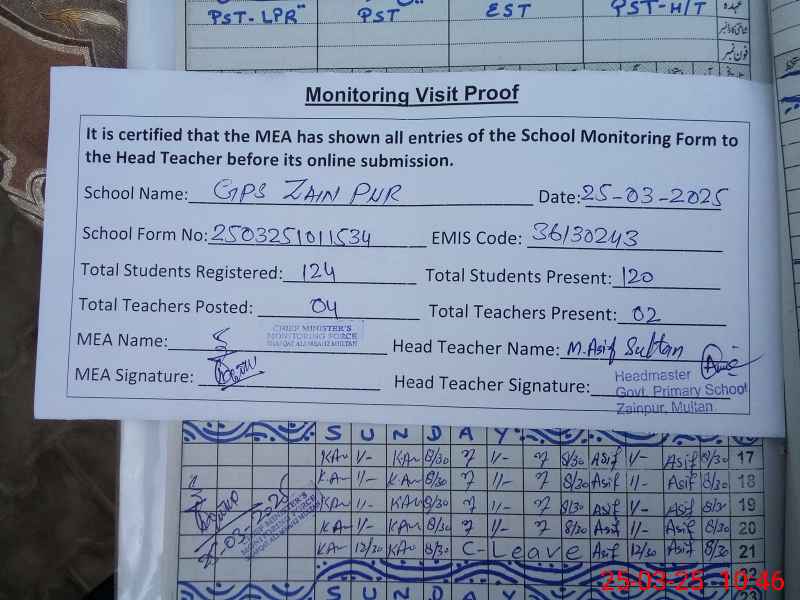 PST-LPR" PST EST PST-H/T عہدہ
فون نمبر
Monitoring Visit Proof
It is certified that the MEA has shown all entries of the School Monitoring Form to
the Head Teacher before its online submission.
School Name: GPS ZAIN PUR Date: 25-03-2025
School Form No: 2503251011534 EMIS Code: 36130243
Total Students Registered: 124 Total Students Present: 120
Total Teachers Posted: 04 Total Teachers Present: 02
CHIEF MINISTER'S
MONITORING FORCE
MEA Name: Head Teacher Name: M. Asif Sultan
MEA Signature: Head Teacher Signature:
Headmaster
Govt. Primary School
Zainpur, Multan.
S U N D A Y
KAu 1/- KAu 8/30 7 1/- 7 8/30 Asif 1/- Asif 8/30 17
KAu 1/- KAu 8/30 7 1/- 7 8/30 Asif 1/- Asif 8/30 18
KAu 1/- KAu 8/30 7 1/- 7 8/30 Asif 1/- Asif 8/30 19
KAu 1/- KAu 8/30 7 1/- 7 8/30 Asif 1/- Asif 8/30 20
KAu 12/30 KAu 8/30 C-Leave Asif 12/30 Asif 8/30 21
22
S U N D A Y 23
25-03-25 10:46